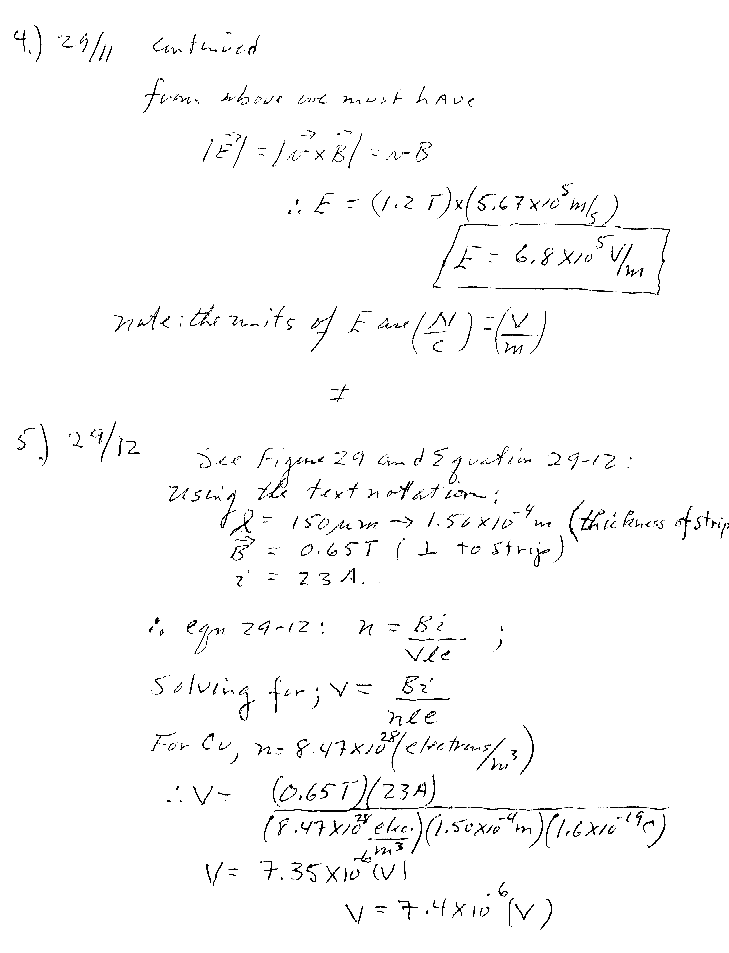 4.) 29/11 continued
from above we must have
|E⃗| = |v⃗ × B⃗| = vB
∴ E = (1.2 T)×(5.67×10⁵ m/s)
E = 6.8×10⁵ V/m
note: the units of E are (N/C) = (V/m)
≠
5.) 29/12 See Figure 29 and Equation 29-12:
Using the text notation:
l = 150 μm → 1.50×10⁻⁴ m (thickness of strip
B⃗ = 0.65T (⊥ to strip)
i = 23 A.
∴ eqn 29-12: n = Bi/Vle ;
Solving for; V = Bi/nle
For Cu, n = 8.47×10²⁸ (electrons/m³)
∴ V = (0.65T)(23A)/(8.47×10²⁸ elec./m³)(1.50×10⁻⁴m)(1.6×10⁻¹⁹C)
V = 7.35×10⁻⁶ (V)
V = 7.4×10⁻⁶ (V)